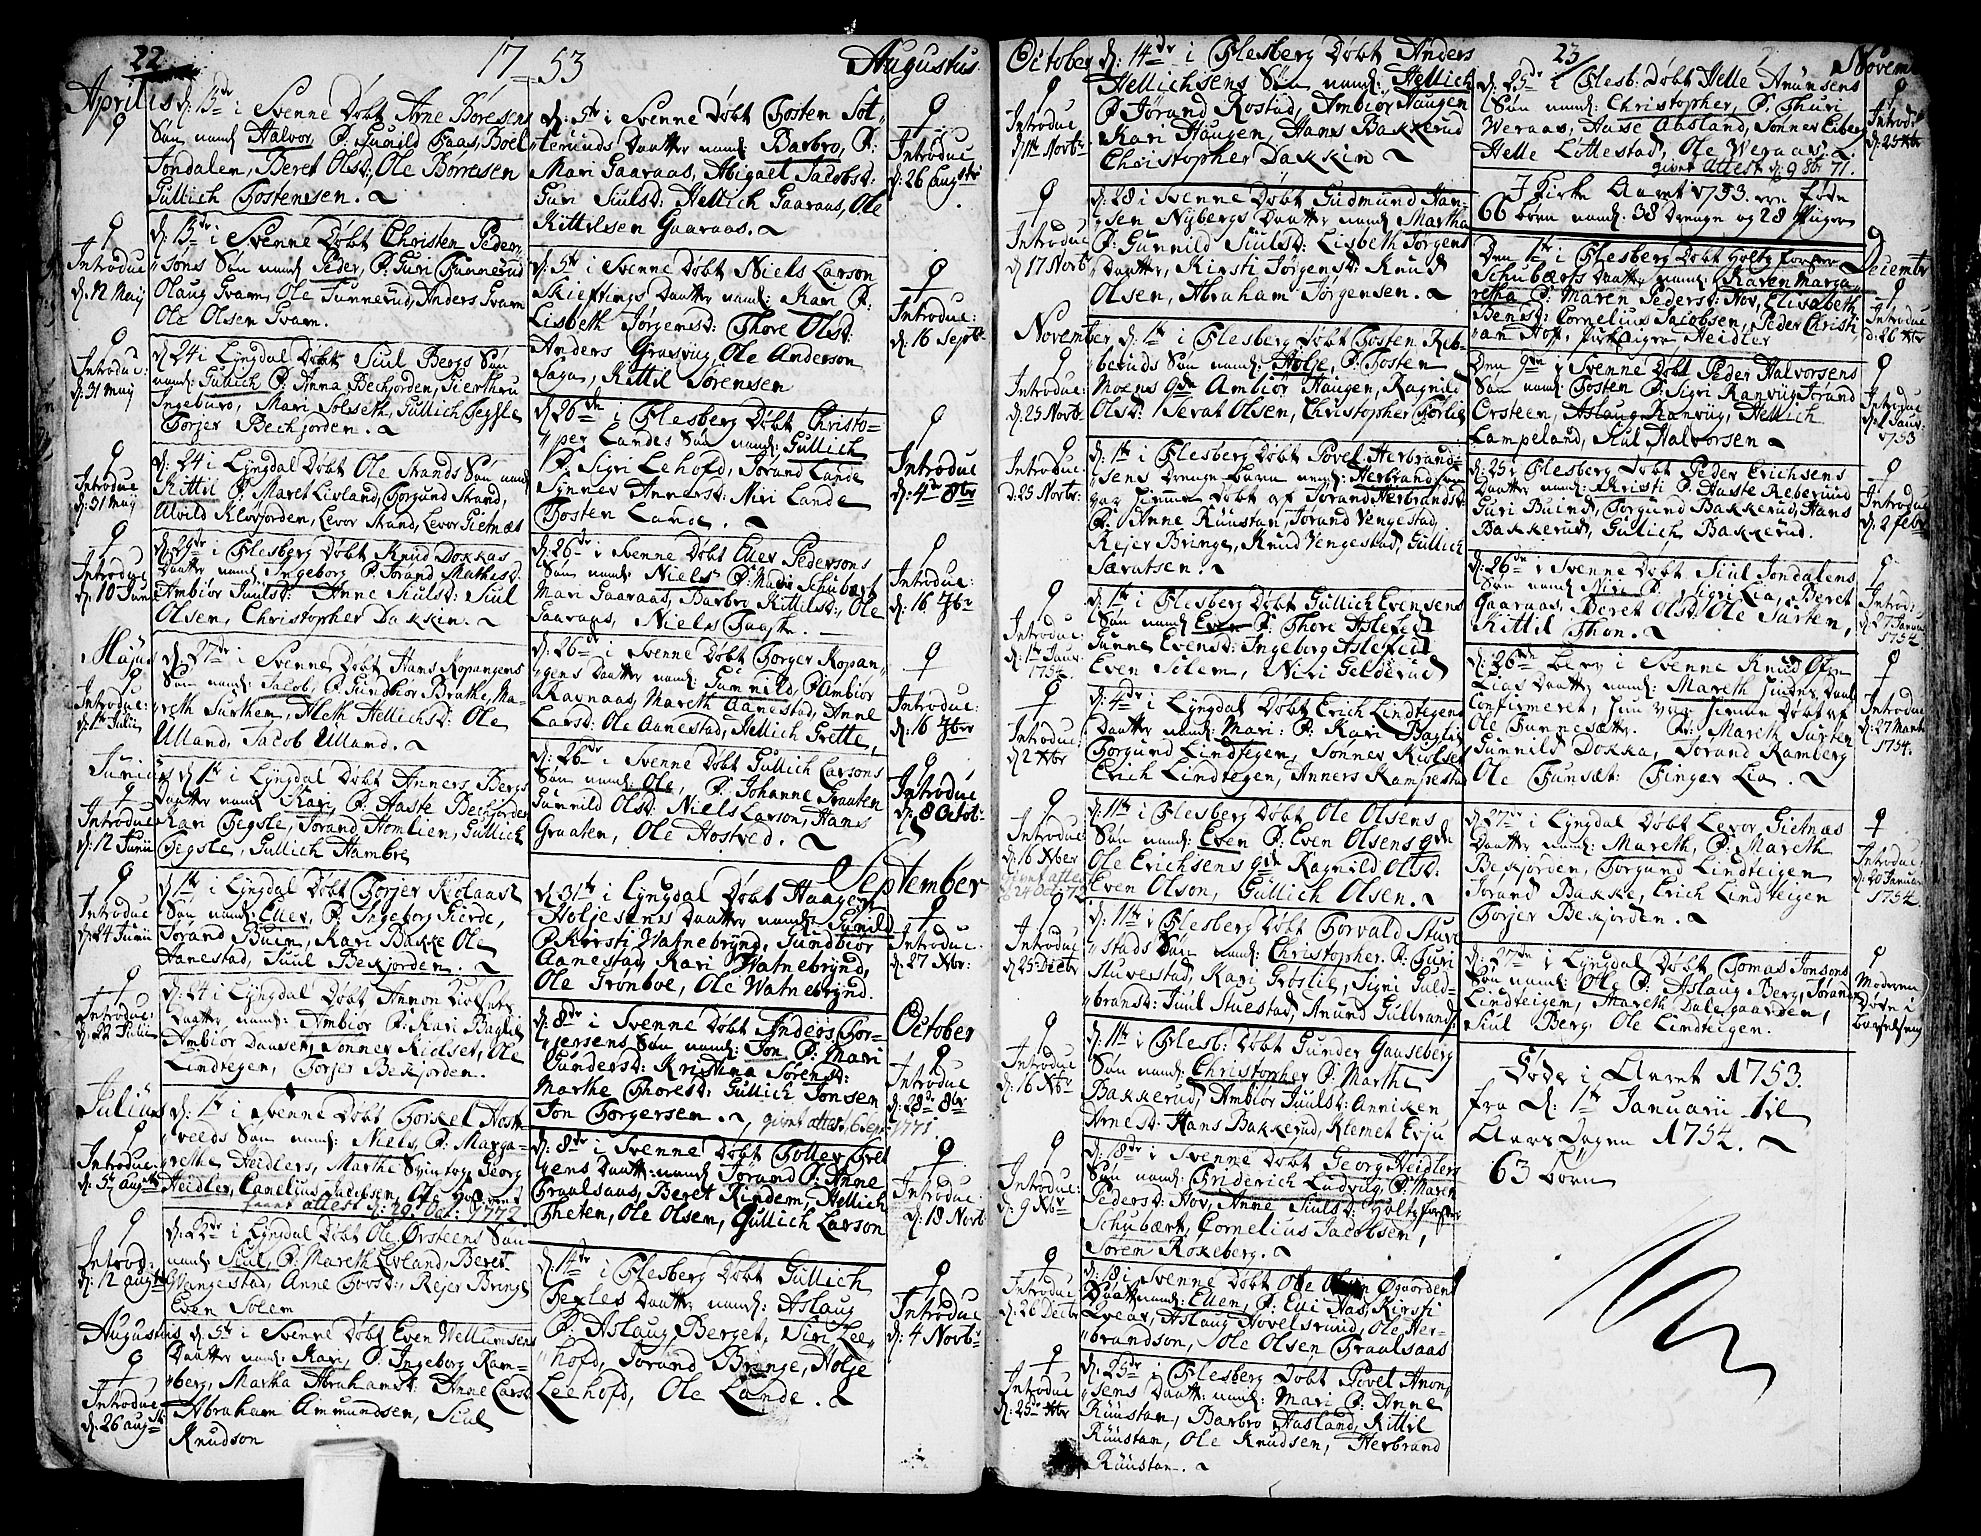 22
17 53
Aprilis
d: 13de i Svenne Døbt Arne Børesens
Søn namd: Halvor, F: Gunild Faas, Boel
Jondalen, Beret Olsd: Ole Børresen
Gullich Tostensen.
d: 13de i Svenne Døbt Christen Peder-
søns Søn namd: Peder, F: Guri Tunnerud
Olaug Svarn, Ole Tunnerud, Anders Svarn
Ole Olsen Svarn.
Introduc
d: 12 Maij
d: 24 i Lyngdal Døbt Siul Bergs Søn
namd: Gullich F: Anna Bechjorden, Giertheru
Ingeburo, Mari Solseth, Gullich Tegsle
Torjer Bechjorden.
Introduc:
d: 31 Maij
d: 24 i Lyngdal Døbt Ole Strands Søn namd:
Kittil F: Maret Livland, Torgund Strand,
Alvild Klevjorden, Levor Strand, Levor Gietnæs
Introduc
d: 31 Maij
d: 29de i Flesberg Døbt Knud Dokkas
Daatter namd: Ingeborg F: Jørand Mathisd:
Ambiør Juulsd: Anne Siulsd: Siul
Olsen, Christopher Dakkin.
Introduc
d: 10 Junii
Majus
d: 27de i Svenne Døbt Hans Kopangens
Søn namd: Jacob, F: Gundhor Brathe, Ma-
reth Surthen, Aleth Hellichsd: Ole
Ulland, Jacob Ulland.
Introduc:
d: 1te Julii
Junius
d: 1te i Lyngdal Døbt Anners Bergs
Daatter namd: Kari, F: Haste Bechjorden
Kari Tegsle, Jørand Homlien, Gullich
Tegsle, Gullich Hambre
Introduc
d: 12 Junii
d: 1te i Lyngdal Døbt Torjer Kiolaas
Søn namd: Ellev, F: Ingeborg Fierde,
Jørand Buin, Kari Bakke Ole
Aanestad, Juul Bekjorden.
Introduc
d: 24 Junii
d: 24 i Lyngdal Døbt Annon
Daatter namd: Ambiør F: Kari Baglie
Ambiør Daasen, Sønnev Kiolset, Ole
Lindtegen, Torjer Bekjorden.
Introduc:
d: 22 Julii
Julius
d: 1te i Svenne Døbt Torkel Host-
veeds Søn namd: Niels, F: Marga-
rethe Heidlers, Marthe Spintog, Georg
Heidler, Cornelius Jacobsen, Ole
givet attest d: 29 Oct: 1772
Introduc:
d: 5te augusti
d: 22de i Lyngdal Døbt Ole Ørsteens Søn
namd: Siul, F: Mareth Livland, Beret
Vangestad, Anne Tovsd: Rejer Bringe
Even Solem
Introd:
d: 12 augusti
Augustus
d: 5te i Svenne Døbt Even Vellumsens
Daatter namd: Kari, F: Ingeborg Ram-
berg, Martha Abrahamsd: Anne Larsd:
Abraham Ammundsen, Siul
Knudson
Introduc
d: 26 augsti
Augustus
d: 5te i Svenne Døbt Tosten Sot-
terunds Daatter namd: Barbro, F:
Mari Gaaraas, Abigael Jacobsd:
Guri Siulsd: Hellich Gaaraas, Ole
Kittilsen Gaaraas.
Introduc
d: 26 augsti
d: 5te i Svenne Døbt Niels Larson
Skieftings Daatter namd: Kari F:
Lisbeth Jørgensd: Thore Olsd:
Anders Grasvug, Ole Anderson
Saga, Kittil Sørensen
Introduc:
d: 16 Septbr
d: 26de i Flesberg Døbt Christo-
per Landes Søn namd: Gullich
F: Sigri Lehofd, Jørand Lande
Synnev Annersd: Niri Lande
Tosten Lande.
Introduc
d: 4de 8br
d: 26de i Svenne Døbt Ellev Pedersons
Søn namd: Niels F: Mari Schubært
Mari Gaaraas, Barbro Kittilsd: Ole
Gaaraas, Niels Taaste.
Introduc:
d: 16 7br
d: 26de i Svenne Døbt Torger Kopan-
gens Daatter namd: Gunnild, F: Ambiør
Ravnaas, Mareth Aanestad, Anne
Larsd: Ole Aanestad, Hellich Grette,
Introduc:
d: 16 7br
d: 26de i Svenne Døbt Gullich Larsons
Søn namd: Ole, F: Johanne Graaten
Gunnild Olsd: Niels Larson, Hans
Graaten, Ole Hostved.
Introduc
d: 8 Octob:
September
d: 31te i Lyngdal Døbt Haagen
Holjesens Daatter namd: Gunild
F: Kirsti Watnebrynd, Gundbiør
Aanestad, Kari Watnebrynd,
Ole Tronboe, Ole Watnebrynd.
Introduc:
d: 27 Xbr:
October
d: 8de i Svenne Døbt Anders Tor-
gersens Søn namd: Jon, F: Mari
Gundersd: Kristina Sørensd:
Marthe Thoresd: Gullich Jonsen
Jon Torgersen.
givet attest 6 Sepr: 1771.
Introduc
d: 28de 8br
d: 8de i Svenne Døbt Tollev Thet
gens Daatter namd: Jørand F: Anne
Traalsaas, Beret Rindem, Hellich
Theten, Ole Olsen, Gullich Larson
Introduc:
d: 18 Novb:
d: 14de i Flesberg Døbt Gullich
Texles Daatter namd: Aslaug
F: Aslaug Berget, Siri Lee-
hofd, Jørand Bringe, Holje
Leehofd, Ole Lande.
Introduc
d: 4 Novb:
October
23
d: 14de i Flesberg Døbt Anders
Hellichsens Søn namd: Hellich
F: Jørand Rostad, Ambiør Haugen
Kari Haugen, Hans Bakkerud
Christopher Dakkin
Introduc
d: 11te Novbr
d: 28 i Svenne Døbt Gudmund Han-
sen Nybergs Daatter namd: Martha
F: Gunnild Siulsd: Lisbeth Jørgens
Daatter, Kirsti Jørgensd: Knud
Olsen, Abraham Jørgensen.
Introduc
d: 17 Novb:
November
d: 1te i Flesberg Døbt Tosten Reb-
beruds Søn namd: Holje, F: Tosten
Moens qde Ambiør Haugen, Ragnild
Olsd: Sevat Olsen, Christopher Torlie
Introduc:
d: 25 Novbr
d: 1te i Flesberg Døbt Povel Herbrand-
sens Drenge barn namd: Herbrand som
var hiemme Døbt af Jørand Herbrandsd:
F: Anne Ruustan, Jørand Vengestad,
Rejer Bringe, Knud Vengestad, Gullich
Særatsen.
Introduc:
d: 25 Novbr:
d: 1te i Flesberg Døbt Gullich Evensens
Søn namd: Even F: Thore Aslefied
Gunne Evensd: Ingeborg Aslefied
Even Solem, Niri Gelderud
Introduc:
d: 1te Janr:
1754.
d: 4de i Lyngdal Døbt Erich Lindtegens
Daatter namd: Mari: F: Kari Baglie
Torgund Lindtegen, Sønnev Kiolset
Erich Lindtegen, Anners Kampestad
Introduc:
d: 2 Xbr
d: 11te i Flesberg Døbt Ole Olsens
Søn namd: Even F: Even Olsens qde
Ole Erichsens qde Ragnild Olsd:
Even Olson, Gullich Olsen.
Introduc
d: 16 Xber
givet attest
24 Oct: 72
d: 11te i Flesberg Døbt Torvald Stuve
stads Søn namd: Christopher F: Turi
Stuvestad, Kari Grøslie, Sigri Guld-
brandsd: Juul Stuestad, Anund Gulbrands:
Introduc
d: 25 Decbr
d: 11te i Flesb: Døbt Gunder Gaaseberg
Søn namd: Christopher F: Marthe
Bakkerud, Ambiør Juulsd: Anniken
Arnesd: Hans Bakkerud, Klemet Evju
Introduc
d: 16 Xbr
d: 18de i Svenne Døbt Georg Heidlers
Søn namd: Friderich Ludvig, F: Maren
Pedersd: Hov, Anne Siulsd: Holtzforster
Schubært, Cornelius Jacobsen,
Søren Rokeberg.
Introduc:
d: 9 Xbr
d: 18 i Svenne Døbt Ole Øgaardens
Daatter namd: Ellen, F: Elli Aas, Kirsti
Qveas, Aslaug Hovelsrund, Ole Her-
brandson, Ole Olsen Traalsaas
Introduc
d: 26 Decbr
d: 25de i Flesberg Døbt Povel Anon-
sens Daatter namd: Mari F: Anne
Ruustan, Barbro Aasland, Kittil
Ruustan, Ole Knudsen, Herbrand
Ruustan.
Introduc
d: 25de Xbr
Novem
d: 25de i Flesb: Døbt Helle Anunsens
Søn namd: Christopher, F: Thuri
Weraas, Aase Aasland, Sønnev Eiberg
Helle Lottestad, Ole Weraas
givet attest d: 9 8br 71.
Introd:
d: 25 Xbr
I Kirke Aaret 1753. ere føde
66 børn namd: 38 Drenge og 28 Piger
Decembr
Den 1te i Flesberg Døbt Holtz forster
Schubærts Daatter namd: Karen Marga-
retha F: Maren Pedersd: Hov, Elisabeth
Bensd: Cornelius Jacobsen, Peder Christi-
an Hoff, Heidler
Introduc
d: 26 Xbr
Den 9de i Svenne Døbt Peder Halvorsens
Søn namd: Tosten F: Sigri Ranvug, Jørand
Orsteen, Aslaug Ranvug, Hellich
Lampeland, Siul Halvorsen
Introduc
d: 1 Janr:
1753
d: 25 i Flesberg Døbt Peder Erichsens
Daatter namd: Kristi F: Haste Reberuud
Guri Buind, Torgund Bakkerud, Hans
Bakkerud, Gulich Bakkerud.
Introduc
d: 2 febr
d: 26de i Svenne Døbt Siul Jondalens
Søn namd: Niri F: Sigri Lia, Beret
Gaaraas, Beret Olsd: Ole Surten,
Kittil Thon.
Introd:
d: 27 Januar
1754
d: 26de blev i Svenne Knud Olsen
Lias Daatter namd: Mareth hindes Daab
Confirmeret, hun var hiemme Døbt af
Ole Tunnesætt. Fr: Mareth Surten
Gunnild Dokka, Jørand Ramberg
Ole Tunsæt: Finger Lia.
Introduc
d: 27 Marti
1754.
d: 27de i Lyngdal Døbt Levor Gietnæs
Daatter namd: Mareth, F: Mareth
Bekjorden, Torgund Lindteigen
Jørand Bakke, Erich Lindteigen
Torjer Bekjorden.
Introduc
d: 20 Januar
1754.
d: 27de i Lyngdal Døbt Tomas Jonsons
Søn namd: Ole F: Aslaug Berg, Jørand
Lindteigen, Mareth Dalegaarden,
Siul Berg, Ole Lindteigen.
Moderen
Døde i
barselseng
Føde i Aaret 1753.
fra d: 1te Januarii til
Aarsdagen 1754.
63 børn